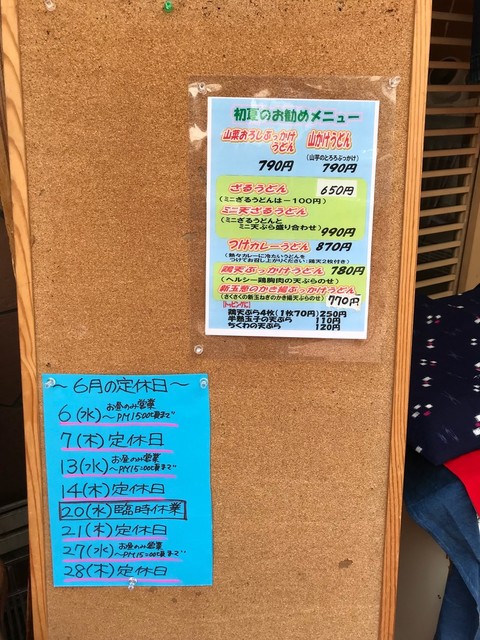 初夏のお勧めメニュー
山菜おろしぶっかけうどん
790円
山かけうどん
(山芋のとろろぶっかけ)
790円
ざるうどん 650円
(ミニざるうどんは－100円)
ミニ天ざるうどん
(ミニざるうどんと
ミニ天ぷら盛り合わせ)
990円
つけカレーうどん 870円
(熱々カレーに冷たいうどんを
つけてお召し上がりください:鶏天2枚付き)
鶏天ぶっかけうどん 780円
(ヘルシー鶏胸肉の天ぷらのせ)
新玉葱のかき揚ぶっかけうどん
(さくさくの新玉ねぎのかき揚天ぷらのせ) 770円
【トッピングに】
鶏天ぷら4枚(1枚70円)250円
半熟玉子の天ぷら 110円
ちくわの天ぷら 120円
～6月の定休日～
6(水) お昼のみ営業
～PM15:00頃まで
7(木)定休日
13(水) お昼のみ営業
～PM15:00頃まで
14(木)定休日
20(水)臨時休業
21(木)定休日
27(水) お昼のみ営業
～PM15:00頃まで
28(木)定休日